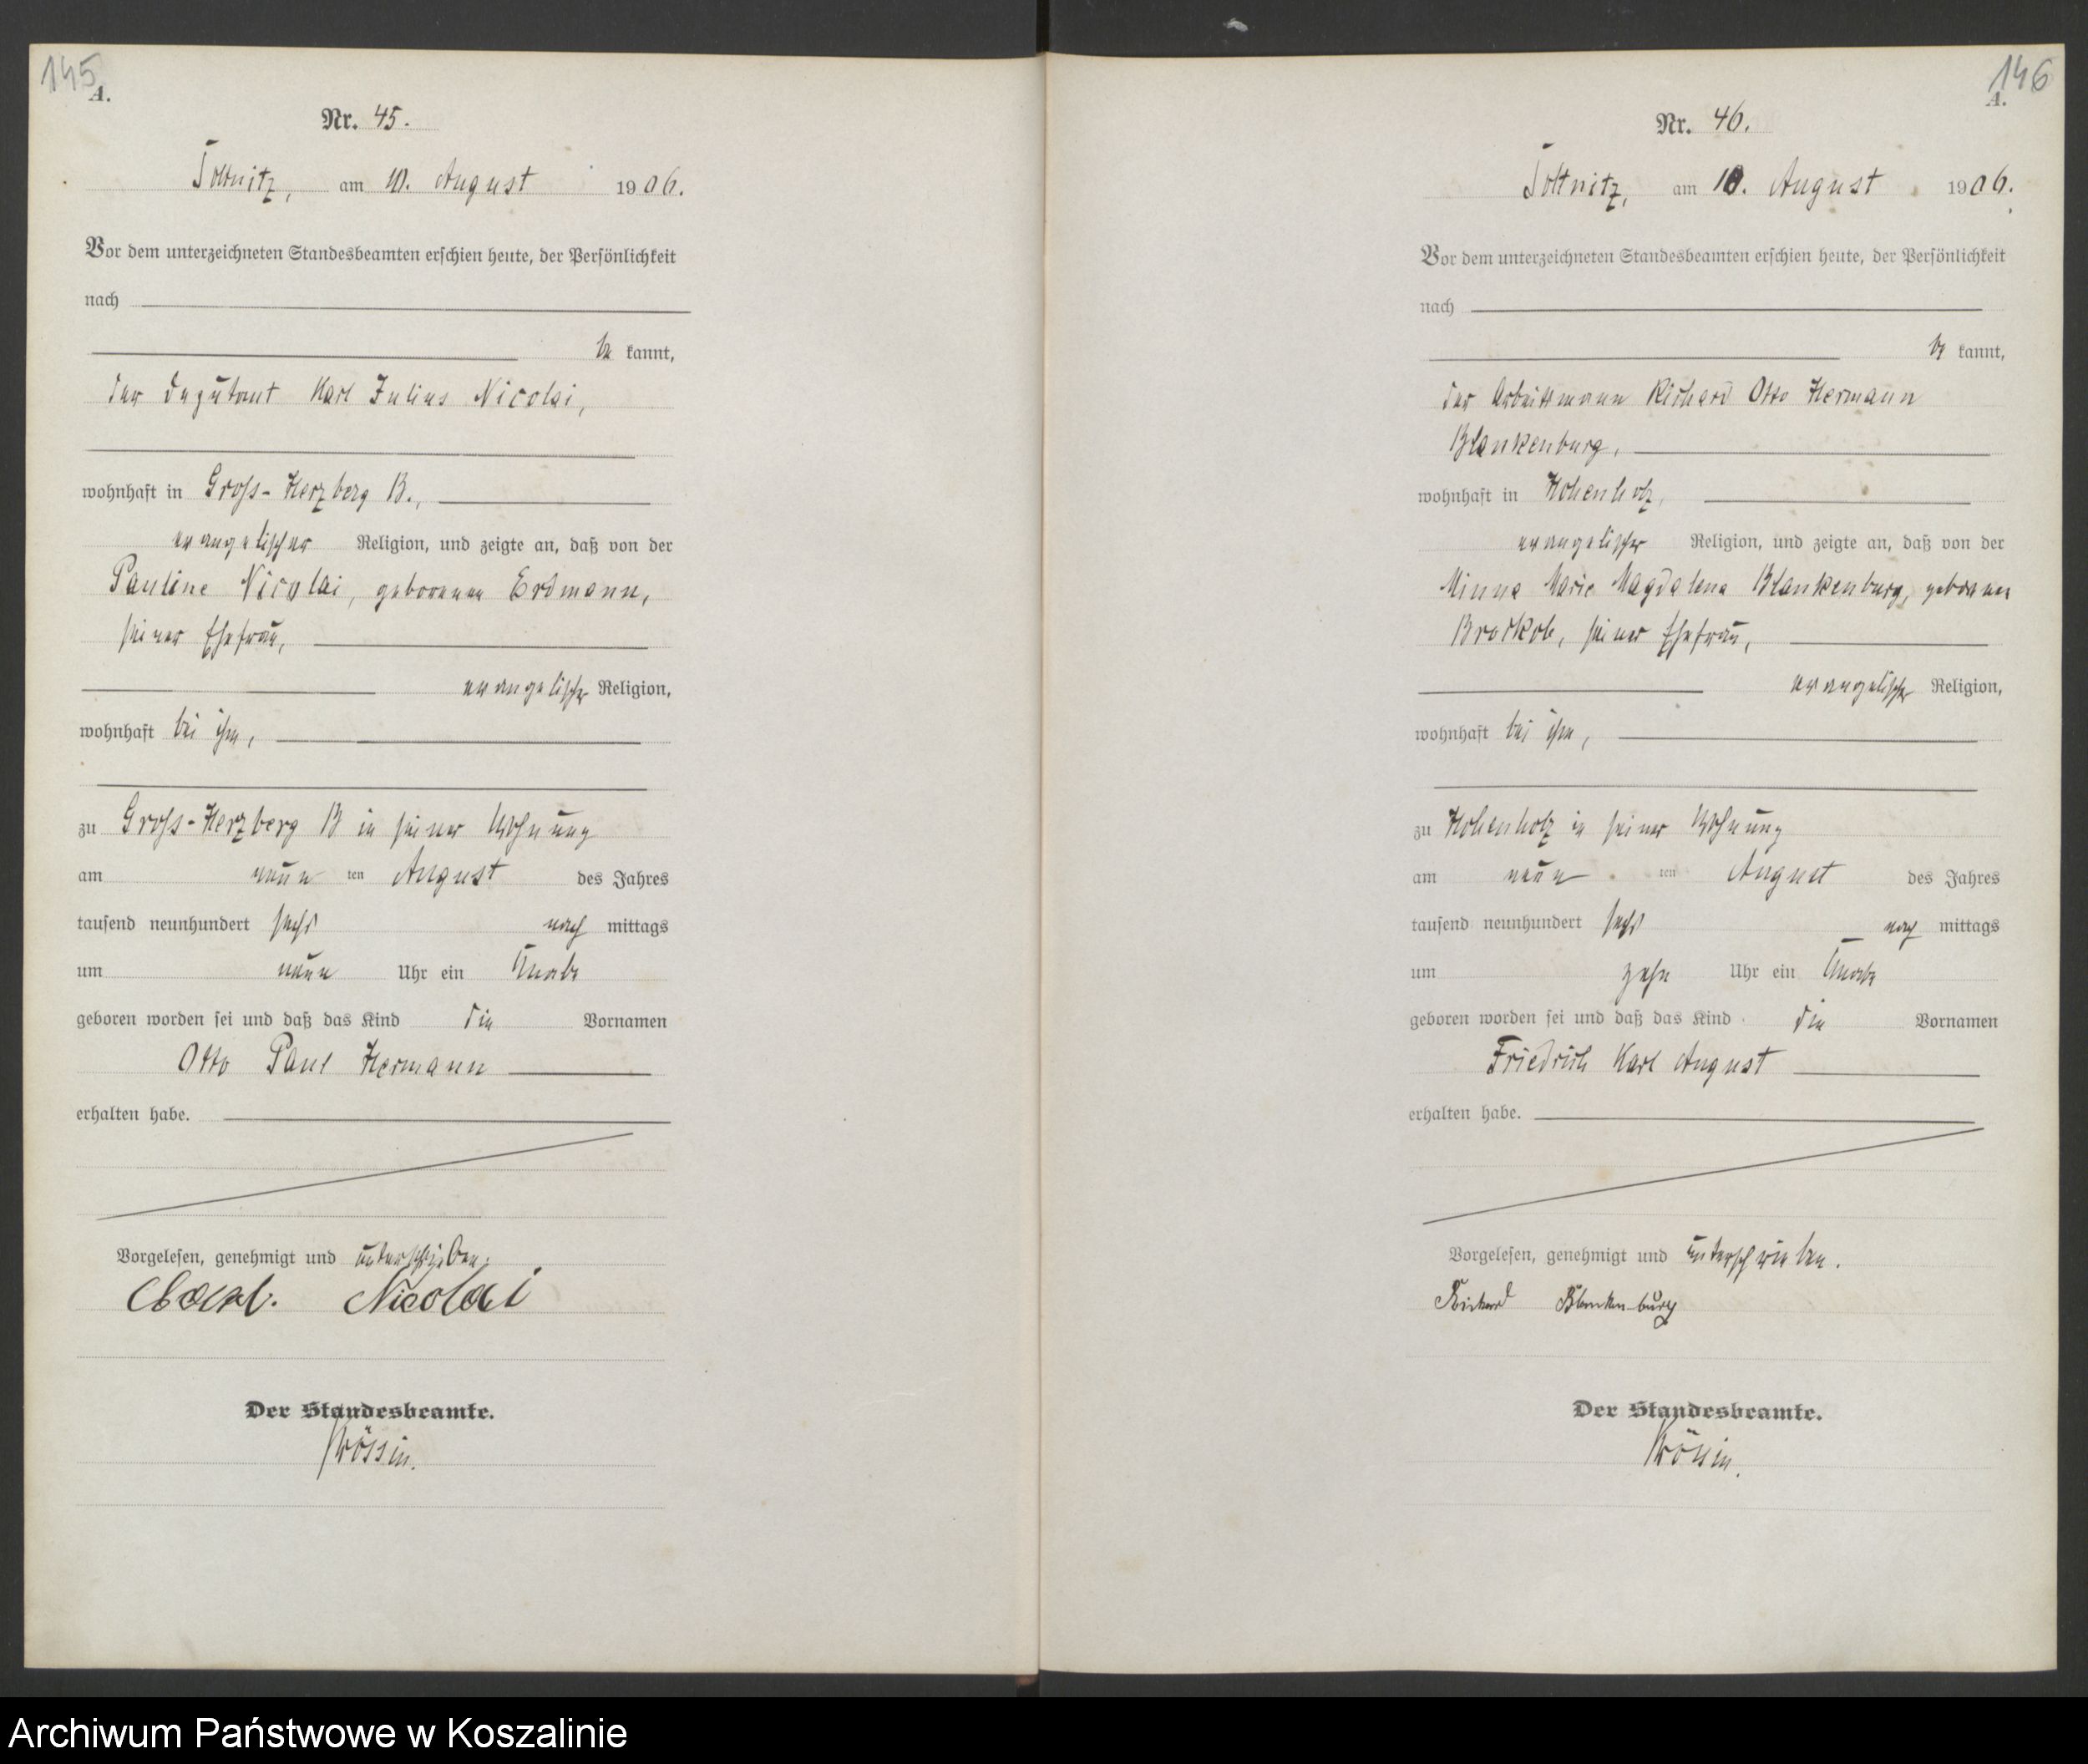 145
A.
Nr. 45.
Soltnitz, am 10. August 1906.
Vor dem unterzeichneten Standesbeamten erschien heute, der Persönlichkeit
nach
be kannt,
der Deputant Karl Julius Nicolai,
wohnhaft in Gross-Herzberg B.,
evangelischer Religion, und zeigte an, daß von der
Pauline Nicolai, geborenen Erdmann,
seiner Ehefrau,
evangelischer Religion,
wohnhaft bei ihm,
zu Gross-Herzberg B in seiner Wohnung
am neun ten August des Jahres
tausend neunhundert sechs nach mittags
um neun Uhr ein Knabe
geboren worden sei und daß das Kind die Vornamen
Otto Paul Hermann
erhalten habe.
Vorgelesen, genehmigt und unterschrieben.
Karl. Nicolai
Der Standesbeamte.
Krössin.
146
A.
Nr. 46.
Soltnitz, am 10. August 1906.
Vor dem unterzeichneten Standesbeamten erschien heute, der Persönlichkeit
nach
be kannt,
der Arbeitsmann Richard Otto Hermann
Blankenburg,
wohnhaft in Hohenholz,
evangelischer Religion, und zeigte an, daß von der
Minna Marie Magdalena Blankenburg, geborenen
seiner Ehefrau,
evangelischer Religion,
wohnhaft bei ihm,
zu Hohenholz in seiner Wohnung
am neun ten August des Jahres
tausend neunhundert sechs nach mittags
um zehn Uhr ein Knabe
geboren worden sei und daß das Kind die Vornamen
Friedrich Karl August
erhalten habe.
Vorgelesen, genehmigt und unterschrieben.
Richard Blankenburg
Der Standesbeamte.
Krössin.
Archiwum Państwowe w Koszalinie